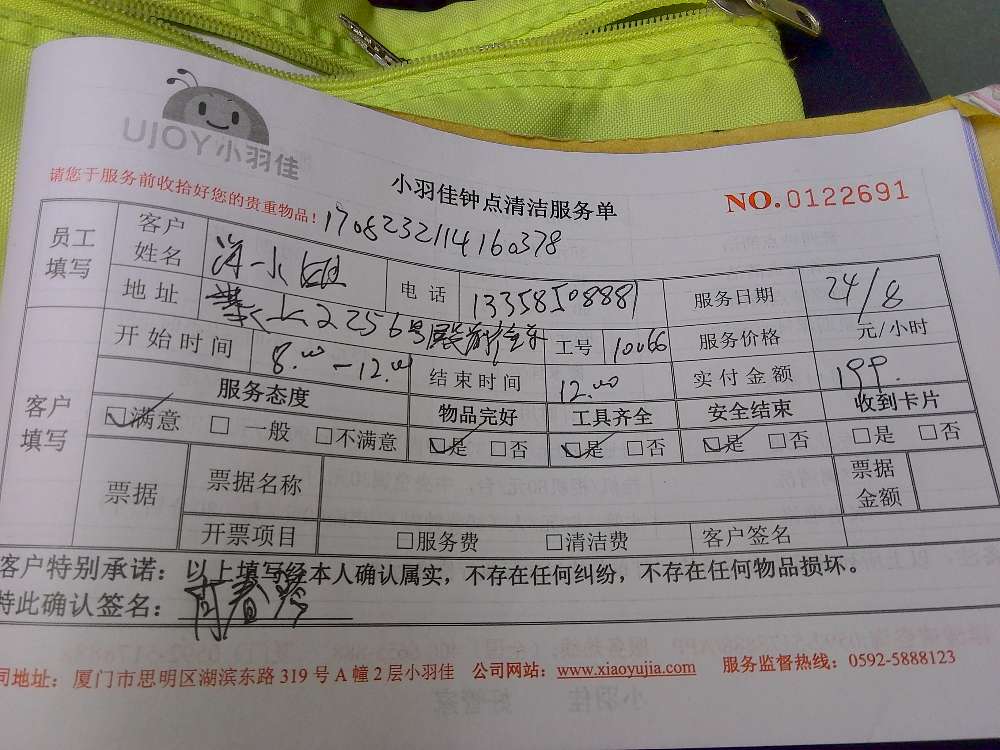 UJOY小羽佳
小羽佳钟点清洁服务单
NO.0122691
请您于服务前收拾好您的贵重物品!
1708232114160378
员工填写 客户姓名 电话 13358508881 服务日期 24/8
地址 2256号 工号 10066 服务价格 元/小时
客户填写 开始时间 8.00-12.00 结束时间 12.00 实付金额 199.
服务态度 物品完好 工具齐全 安全结束 收到卡片
☑满意 □一般 □不满意 ☑是 □否 ☑是 □否 ☑是 □否 □是 □否
票据 票据名称 票据金额
开票项目 □服务费 □清洁费 客户签名
客户特别承诺:以上填写经本人确认属实,不存在任何纠纷,不存在任何物品损坏。
特此确认签名:
司地址:厦门市思明区湖滨东路319号A幢2层小羽佳 公司网站:www.xiaoyujia.com 服务监督热线:0592-5888123